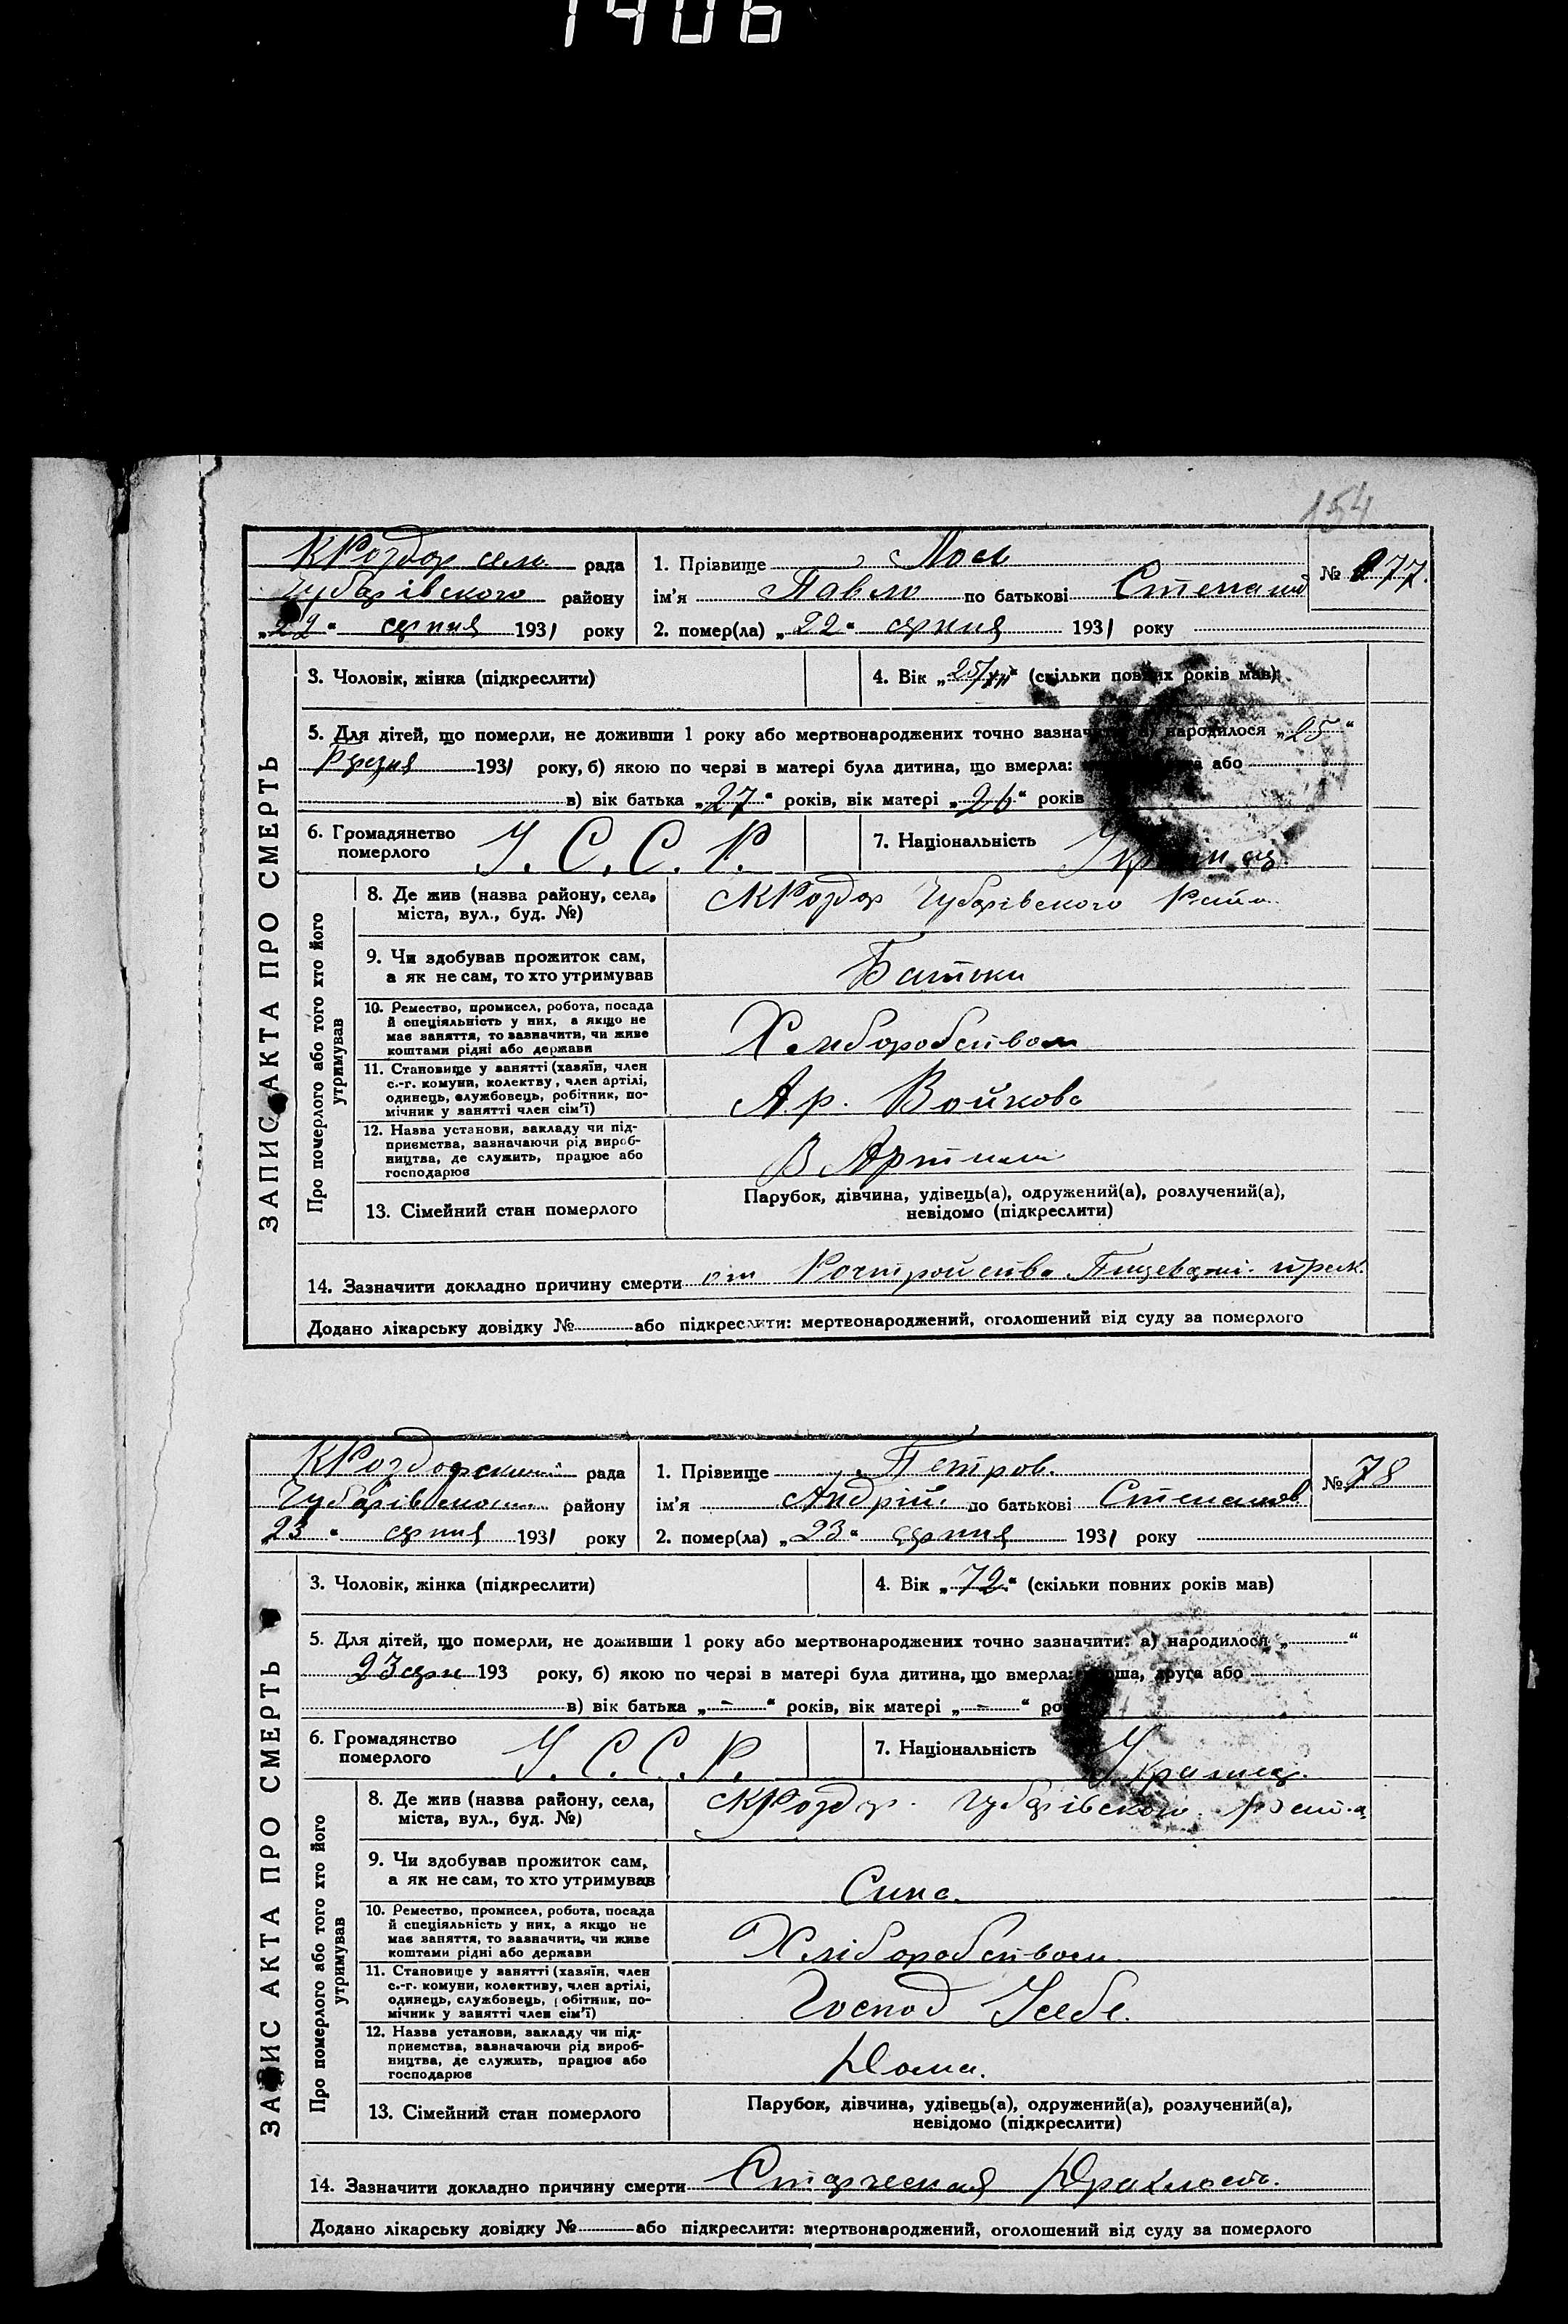 1406
154
КРоздор сель рада
Чубарівского району
„22“ серпня 1931 року
1. Прізвище Лось
ім'я Павло по батькові Степанов
№ 77.
2. помер(ла) „22“ серпня 1931 року
ЗАПИС АКТА ПРО СМЕРТЬ
3. Чоловік, жінка (підкреслити)
4. Вік „25/ “ (скільки повних років мав)
5. Для дітей, що померли, не доживши 1 року або мертвонароджених точно зазначити: а) народилося „25“
1931 року, б) якою по черзі в матері була дитина, що вмерла: або
в) вік батька „27“ років, вік матері „26“ років
6. Громадянство
померлого
У. С. С. Р.
7. Національність Українец.
Про померлого або того хто його
утримував
8. Де жив (назва району, села,
міста, вул., буд. №)
с КРоздор Чубарівского
9. Чи здобував прожиток сам,
а як не сам, то хто утримував
Батоки
10. Ремество, промисел, робота, посада
й спеціяльність у них, а якщо не
має заняття, то зазначити, чи живе
коштами рідні або держави
Хлиборобством
11. Становище у занятті (хазяїн, член
с.-г. комуни, колектву, член артілі,
одинець, службовець, робітник, по-
мічник у занятті член сім'ї)
Ар. Войкова
12. Назва установи, закладу чи під-
приємства, зазначаючи рід вироб-
ництва, де служить, працює або
господарює
В Артили
13. Сімейний стан померлого
Парубок, дівчина, удівець(а), одружений(а), розлучений(а),
невідомо (підкреслити)
14. Зазначити докладно причину смерти от Ростройства Пищеварі.
Додано лікарську довідку № або підкреслити: мертвонароджений, оголошений від суду за померлого
КРоздорский рада
району
„23“ серпня 1931 року
1. Прізвище Петров.
ім'я Андрій. по батькові Степанов
№ 78
2. помер(ла) „23“ серпня 1931 року
ЗАПИС АКТА ПРО СМЕРТЬ
3. Чоловік, жінка (підкреслити)
4. Вік „72“ (скільки повних років мав)
5. Для дітей, що померли, не доживши 1 року або мертвонароджених точно зазначити: а) народилося „ “
23 серп 193 року, б) якою по черзі в матері була дитина, що вмерла: перша, друга або
в) вік батька „-“ років, вік матері „-“ ро
6. Громадянство
померлого
У. С. С. Р.
7. Національність Украинец.
Про померлого або того хто його
утримував
8. Де жив (назва району, села,
міста, вул., буд. №)
с КРоздор. Чубарівского
9. Чи здобував прожиток сам,
а як не сам, то хто утримував
Сина.
10. Ремество, промисел, робота, посада
й спеціяльність у них, а якщо не
має заняття, то зазначити, чи живе
коштами рідні або держави
Хліборобством
11. Становище у занятті (хазяїн, член
с.-г. комуни, колективу, член артілі,
одинець, службовець, робітник, по-
мічник у занятті член сім'ї)
Господ Усебе.
12. Назва установи, закладу чи під-
приємства, зазначаючи рід вироб-
ництва, де служить, працює або
господарює
Дома.
13. Сімейний стан померлого
Парубок, дівчина, удівець(а), одружений(а), розлучений(а),
невідомо (підкреслити)
14. Зазначити докладно причину смерти Старческая Дряхлость.
Додано лікарську довідку № або підкреслити: мертвонароджений, оголошений від суду за померлого